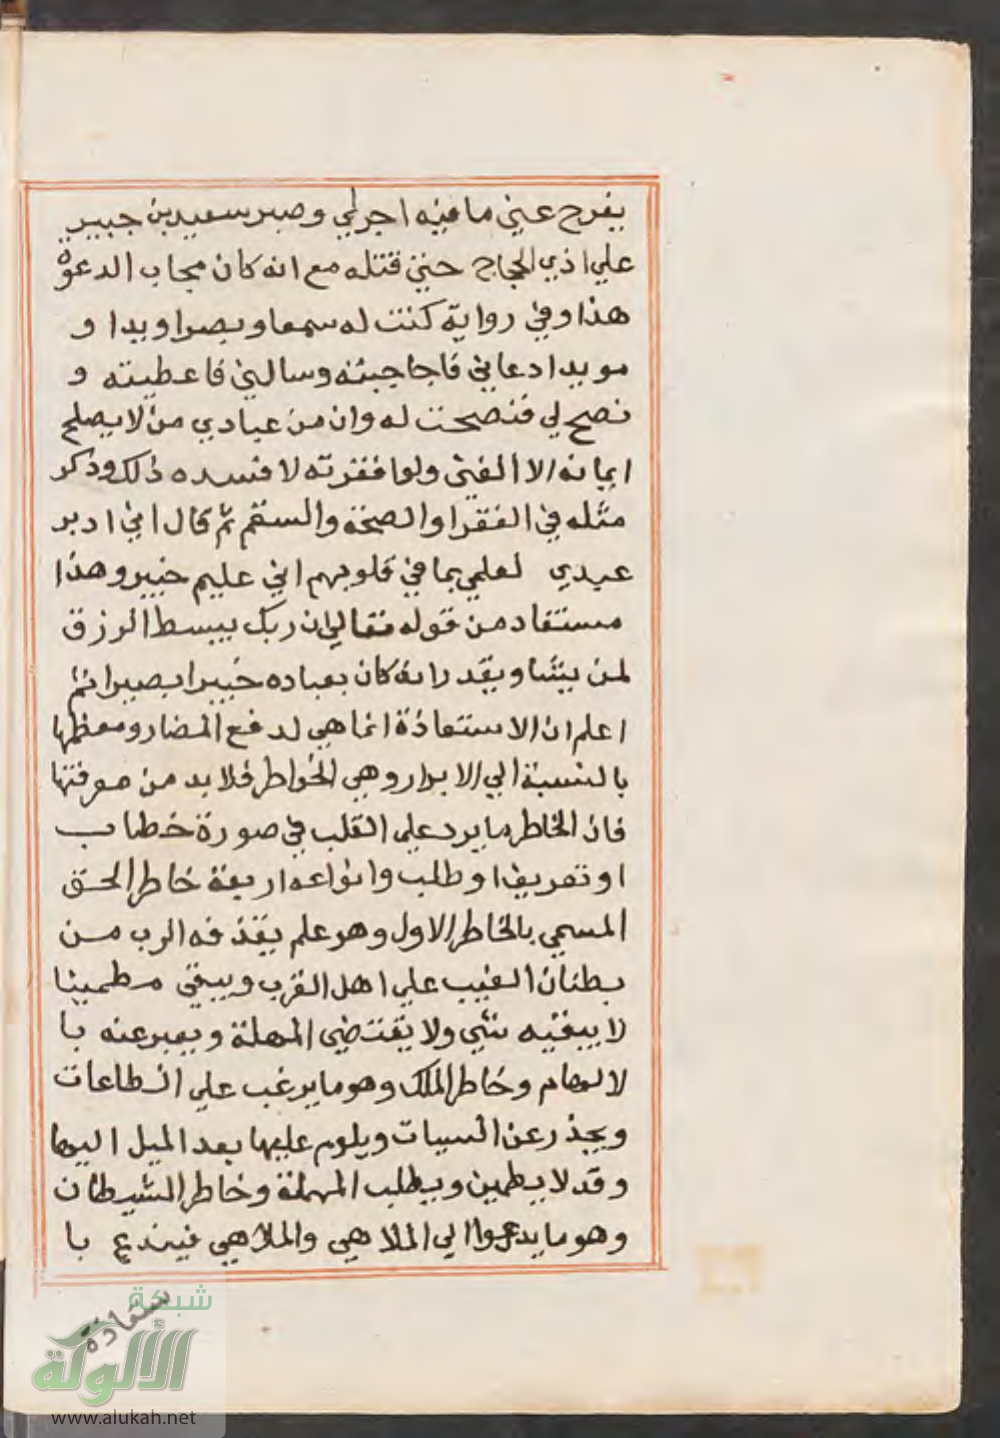 يفرح عني ما فيه اجر لي وصبر سعيد بن جبير
علي اذي الحجاج حتي قتله مع انه كان مجاب الدعوة
هذا وفي رواية كنت له سمعا وبصرا ويدا و
مويدا دعاني فاجاجبته وسالني فاعطيته و
نصح لي فنصحت له وان من عبادي من لا يصلح
ايمانه الا الغني ولو افقرته لا فسده ذلك وذكر
مثله في الفقر او الصحة والسقم ثم قال اني ادبر
عبدي لعلمي بما في قلوبهم اني عليم خبير وهذا
مستفاد من قوله تعالي ان ربك يبسط الرزق
لمن يشا ويقدر انه كان بعباده خبيرا بصيرا ثم
اعلم ان الاستعاذة انما هي لدفع المضار ومعظمها
بالنسبة الي الابرار وهي الخواطر فلا بد من معرفتها
فان الخاطر ما يرد علي القلب في صورة خطاب
او تعريف او طلب وانواعه اربعة خاطر الحق
المسمي بالخاطر الاول وهو علم يقذفه الرب من
بطنان الغيب علي اهل القرب ويبقي مطمينا
لا يبقيه شي ولا يقتضي المهلة ويعبر عنه با
لالهام وخاطر الملك وهو ما يرغب علي الطاعات
ويحذر عن السيات ويلوم عليها بعد الميل اليها
وقد لا يطمين ويطلب المهلة وخاطر الشيطان
وهو ما يدعوا الي الملاهي والملاهي فيندع با
ستعاذة
شبكة
الألوكة
www.alukah.net